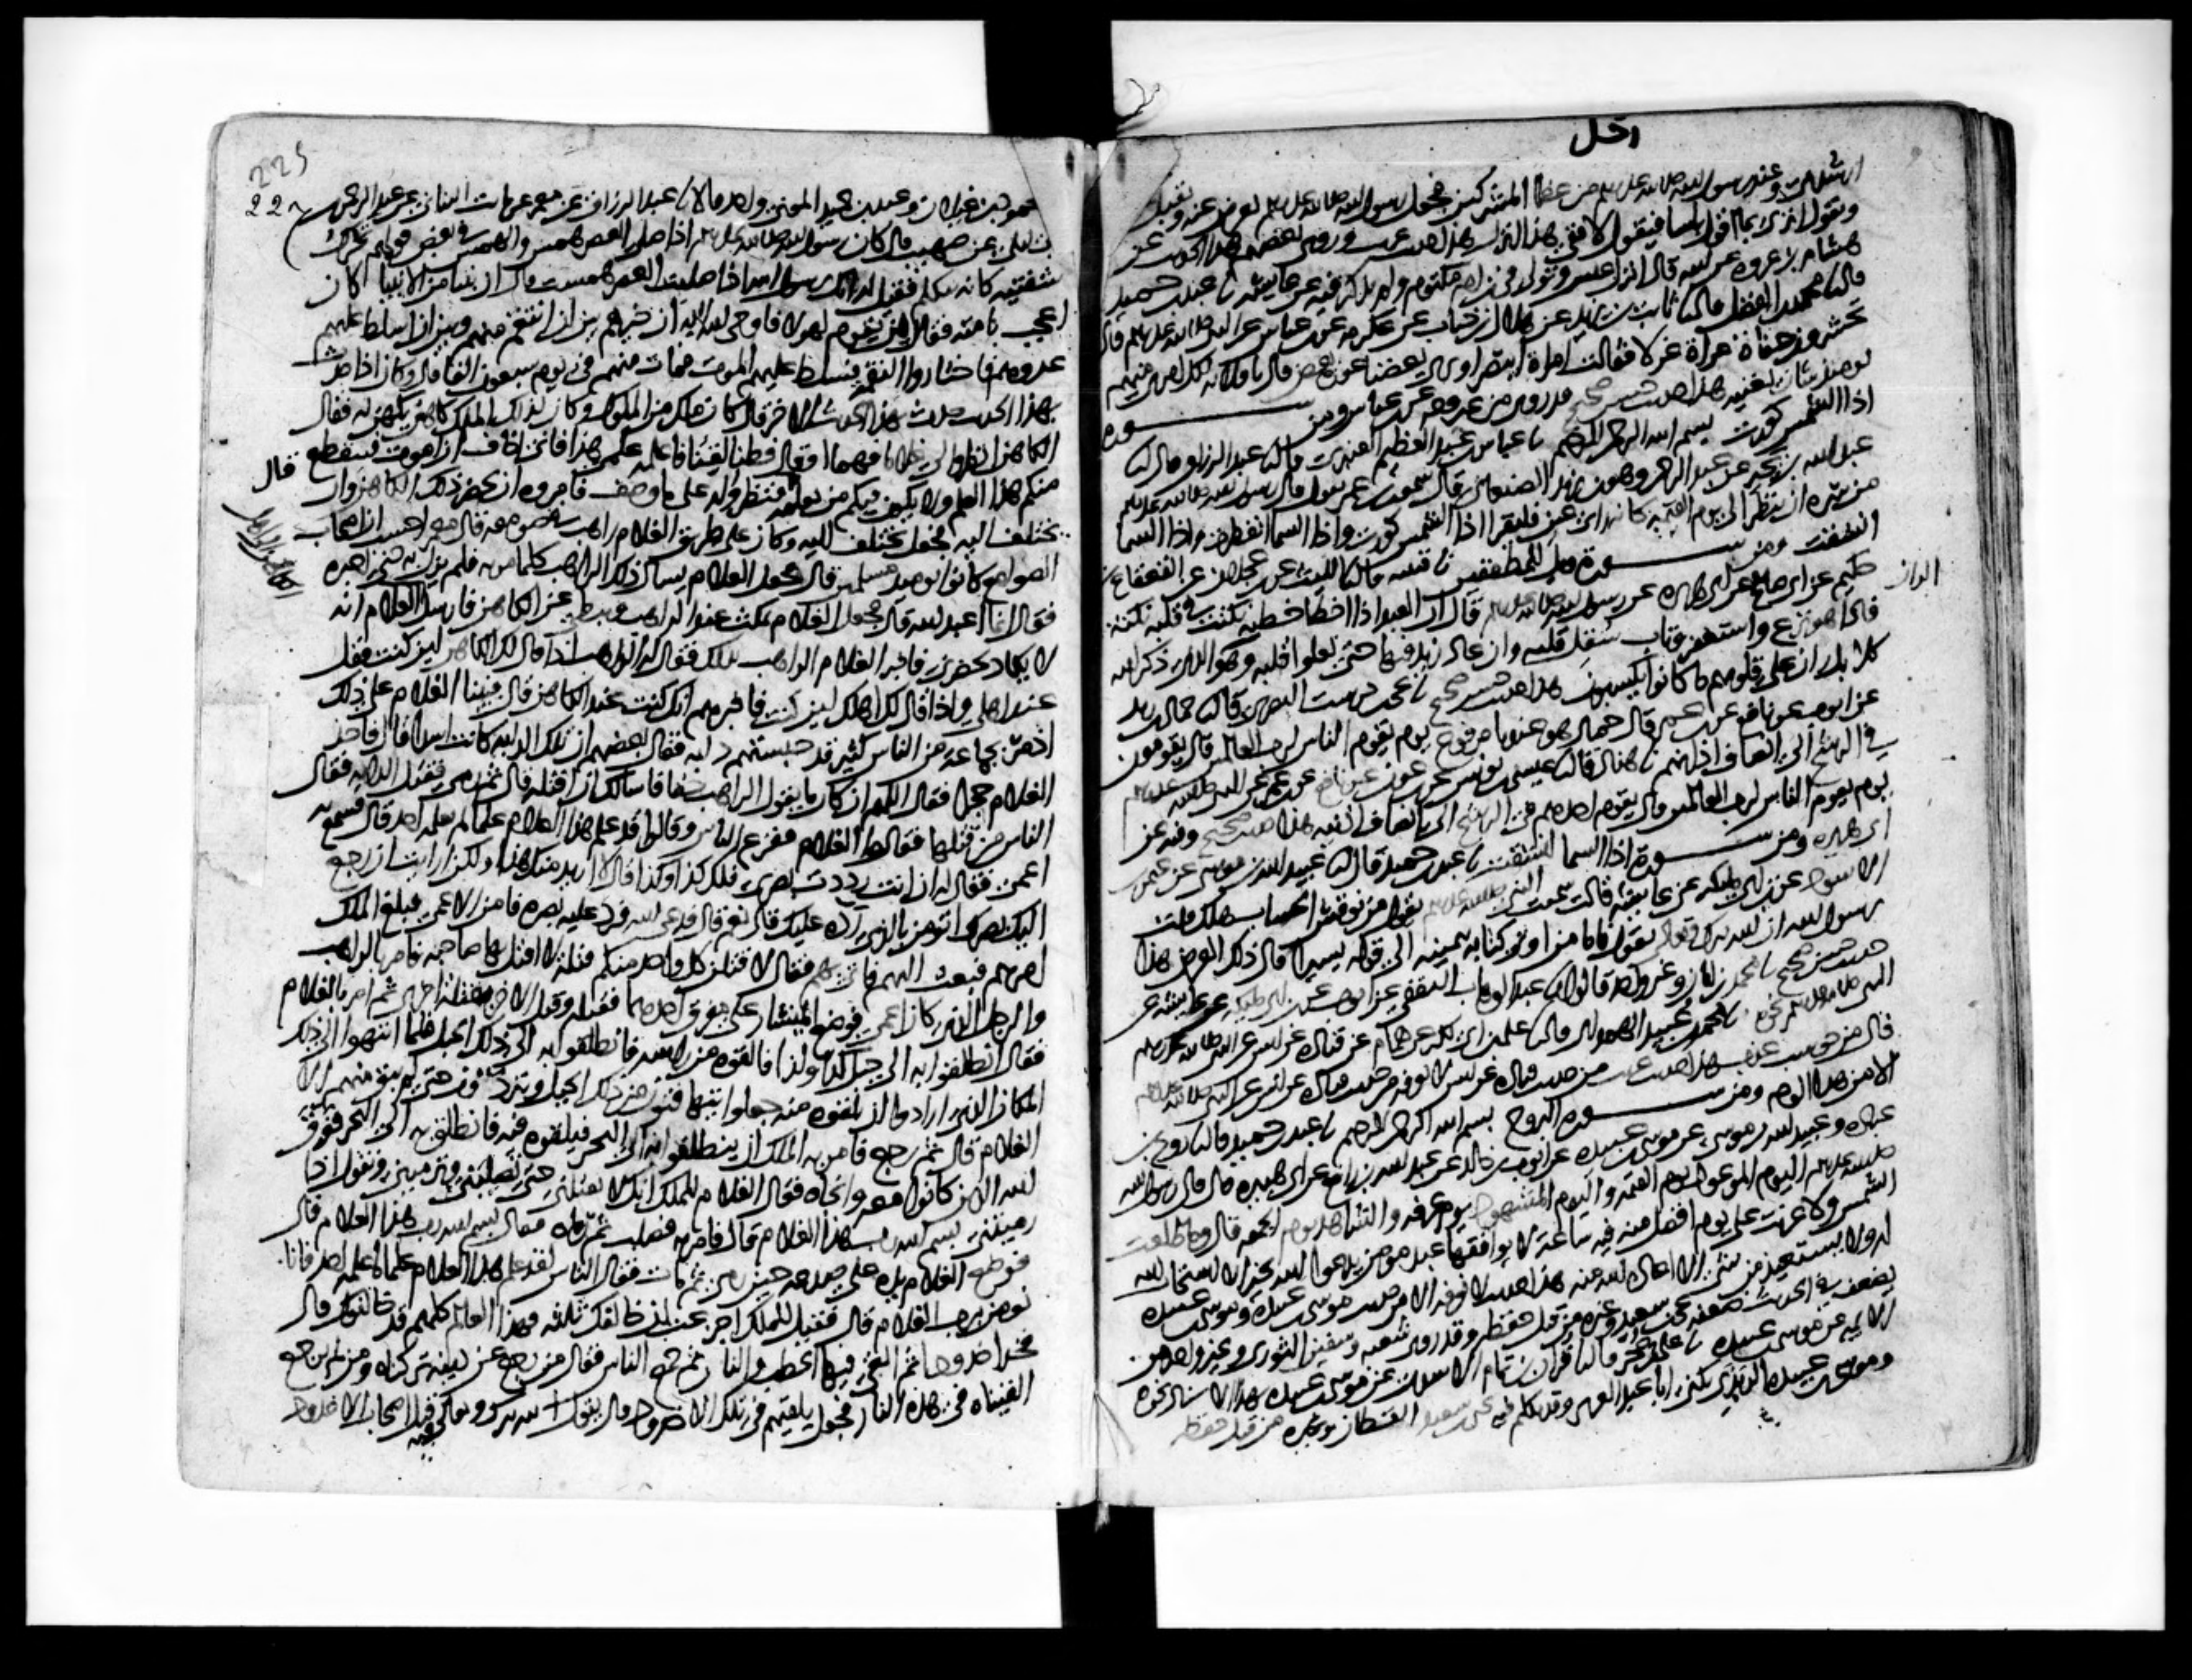 رجل
ارشدني وعند رسول الله صلى الله عليه وسلم من عظما المشركين فجعل رسول الله صلى الله عليه وسلم يعرض عنه ويقبل
ويقول اترى بما اقول باسا فيقول لا ففي هذا انزل هذا حديث غريب وروى بعضهم هذا الحديث عن
هشام بن عروة عن ابيه قال انزل عبس وتولى في ابن ام مكتوم ولم يذكر فيه عن عايشة نا عبد بن حميد
قال نا محمد بن الفضل قال نا ثابت بن يزيد عن هلال بن خباب عن عكرمة عن ابن عباس عن النبي صلى الله عليه وسلم قال
تحشرون حفاة عراة غرلا فقالت امراة ايبصر او يرى بعضنا عورة بعض قال يا فلانة لكل امرئ منهم
يومئذ شان يغنيه هذا حديث حسن صحيح قد روي من غير وجه عن ابن عباس ومن سورة
اذا الشمس كورت بسم الله الرحمن الرحيم نا عباس بن عبد العظيم العنبري قال نا عبد الرزاق قال نا
عبد الله بن بحير عن عبد الرحمن وهو ابن يزيد الصنعاني قال سمعت ابن عمر يقول قال رسول الله صلى الله عليه وسلم
من سره ان ينظر الى يوم القيمة كانه راي عين فليقرا اذا الشمس كورت واذا السما انفطرت واذا السما
انشقت ومن سورة ويل للمطففين نا قتيبة قال نا الليث عن ابن عجلان عن القعقاع بن
حكيم عن ابي صالح عن ابي هريرة عن رسول الله صلى الله عليه وسلم قال ان العبد اذا اخطا خطية نكتت في قلبه نكتة
فاذا هو نزع واستغفر وتاب سقل قلبه وان عاد زيد فيها حتى تعلوا قلبه وهو الران الذي ذكر الله
الران
كلا بل ران على قلوبهم ما كانوا يكسبون هذا حديث حسن صحيح نا يحيى بن درست البصري قال نا حماد بن زيد
عن ايوب عن نافع عن ابن عمر قال حماد هو عندنا مرفوع يوم يقوم الناس لرب العالمين قال يقومون
في الرشح الى انصاف اذانهم نا هناد قال نا عيسى بن يونس عن ابن عون عن نافع عن ابن عمر عن النبي صلى الله عليه وسلم
يوم يقوم الناس لرب العالمين قال يقوم احدهم في الرشح الى انصاف اذنيه هذا حديث صحيح وفيه عن
ابي هريرة ومن سورة اذا السما انشقت نا عبد بن حميد قال نا عبيد الله بن موسى عن عثمن بن
الاسود عن ابن ابي مليكة عن عايشة قالت سمعت النبي صلى الله عليه وسلم يقول من نوقش الحساب هلك قلت
يرسول الله ان الله تبارك وتعالى يقول فاما من اوتي كتابه بيمينه الى قوله يسيرا قال ذلك العرض هذا
حديث حسن صحيح نا محمد بن ابان وغير واحد قالوا نا عبد الوهاب الثقفي عن ايوب عن ابن ابي مليكة عن عايشة عن
النبي صلى الله عليه وسلم نحوه نا محمد بن عبيد الهمداني قال نا علي بن ابي بكر عن همام عن قتادة عن انس عن النبي صلى الله عليه وسلم
قال من حوسب عذب هذا حديث غريب من حديث قتادة عن انس لا نعرفه من حديث قتادة عن انس عن النبي صلى الله عليه وسلم
الا من هذا الوجه ومن سورة البروج بسم الله الرحمن الرحيم نا عبد بن حميد قال نا روح بن
عبادة وعبيد الله بن موسى عن موسى بن عبيدة عن ايوب بن خالد عن عبد الله بن رافع عن ابي هريرة قال قال رسول الله
صلى الله عليه وسلم اليوم الموعود يوم القيمة واليوم المشهود يوم عرفة والشاهد يوم الجمعة قال وما طلعت
الشمس ولا غربت على يوم افضل منه فيه ساعة لا يوافقها عبد مومن يدعوا الله بخير الا استجاب الله
له ولا يستعيذ من شي الا اعاذه الله منه هذا حديث لا نعرفه الا من حديث موسى بن عبيدة وموسى بن عبيدة
يضعف في الحديث ضعفه يحيى بن سعيد وغيره من قبل حفظه وقد روى شعبة وسفين الثوري وغير واحد من
الايمة عن موسى بن عبيدة نا علي بن حجر قال نا قران بن تمام الاسدي عن موسى بن عبيدة بهذا الاسناد نحوه
وموسى بن عبيدة الربذي يكنى ابا عبد العزيز وقد تكلم فيه يحيى بن سعيد القطان وغيره من قبل حفظه
225
22
محمود بن غيلان وعبد بن حميد المعنى واحد قالا نا عبد الرزاق عن معمر عن ثابت البناني عن عبد الرحمن
بن ابي ليلى عن صهيب قال كان رسول الله صلى الله عليه وسلم اذا صلى العصر همس والهمس في بعض قولهم تحرك
شفتيه كانه يتكلم فقيل له انك يرسول الله اذا صليت العصر همست قال ان نبيا من الانبيا كان
اعجب بامته فقال من يقوم لهولا فاوحى الله اليه ان خيرهم بين ان انتقم منهم وبين ان اسلط عليهم
عدوهم فاختاروا النقمة فسلط عليهم الموت فمات منهم في يوم سبعون الفا قال وكان اذا حدث
بهذا الحديث حدث بهذا الحديث الاخر قال كان ملك من الملوك وكان لذلك الملك كاهن يكهن له فقال
الكاهن انظروا لي غلاما فهما او قال فطنا لقنا فاعلمه علمي هذا فاني اخاف ان اموت فينقطع
قال
منكم هذا العلم ولا يكون فيكم من يعلمه فنظروا له على ما وصف فامروه ان يحضر ذلك الكاهن وان
يختلف اليه فجعل يختلف اليه وكان على طريق الغلام راهب في صومعة قال معمر احسب ان اصحاب
الصوامع كانوا يوميذ مسلمين قال فجعل الغلام يسال ذلك الراهب كلما مر به فلم يزل به حتى اخبره
فقال انما اعبد الله قال فجعل الغلام يمكث عند الراهب ويبطي عن الكاهن فارسل الى اهل الغلام انه
لا يكاد يحضرني فاخبر الغلام الراهب بذلك فقال له الراهب اذا قال لك الكاهن اين كنت فقل
عند اهلي واذا قال لك اهلك اين كنت فاخبرهم انك كنت عند الكاهن قال فبينا الغلام على ذلك
اذ مر بجماعة من الناس كثير قد حبستهم دابة فقال بعضهم ان تلك الدابة كانت اسدا قال فاخذ
الغلام حجرا فقال اللهم ان كان ما يقول الراهب حقا فاسالك ان اقتله قال ثم رمى فقتل الدابة فقال
الناس من قتلها فقالوا الغلام ففزع الناس وقالوا قد علم هذا الغلام علما لم يعلمه احد قال فسمع به
اعمى فقال له ان انت رددت بصري فلك كذا وكذا قال لا اريد منك هذا ولكن ارايت ان رجع
اليك بصرك اتومن بالذي رده عليك قال نعم قال فدعى الله فرد عليه بصره فامن الاعمى فبلغ الملك
امرهم فبعث اليهم فاتي بهم فقال لاقتلن كل واحد منكم قتلة لا اقتل بها صاحبه فامر بالراهب
والرجل الذي كان اعمى فوضع المنشار على مفرق احدهما فقتله وقتل الاخر بقتلة اخرى ثم امر بالغلام
فقال انطلقوا به الى جبل كذا وكذا فالقوه من راسه فانطلقوا به الى ذلك الجبل فلما انتهوا الى ذلك
المكان الذي ارادوا ان يلقوه منه جعلوا يتهافتون من ذلك الجبل ويتردون حتى لم يبق منهم الا
الغلام قال ثم رجع فامر به الملك ان ينطلقوا به الى البحر فيلقوه فيه فانطلق به الى البحر فغرق
الله الذين كانوا معه وانجاه فقال الغلام للملك انك لا تقتلني حتى تصلبني وترميني وتقول اذا
رميتني بسم الله رب هذا الغلام قال فامر به فصلب ثم رماه فقال بسم الله رب هذا الغلام قال
فوضع الغلام يده على صدغه حين رمي ثم مات فقال الناس لقد علم هذا الغلام علما ما علمه احد فانا
نومن برب هذا الغلام قال فقيل للملك اجزعت ان خالفك ثلثة فهذا العالم كلهم قد خالفوك قال
فخد اخدودا ثم القى فيها الحطب والنار ثم جمع الناس فقال من رجع عن دينه تركناه ومن لم يرجع
القيناه في هذه النار فجعل يلقيهم في تلك الاخدود قال يقول الله تبارك وتعالى فيه قتل اصحاب الاخدود